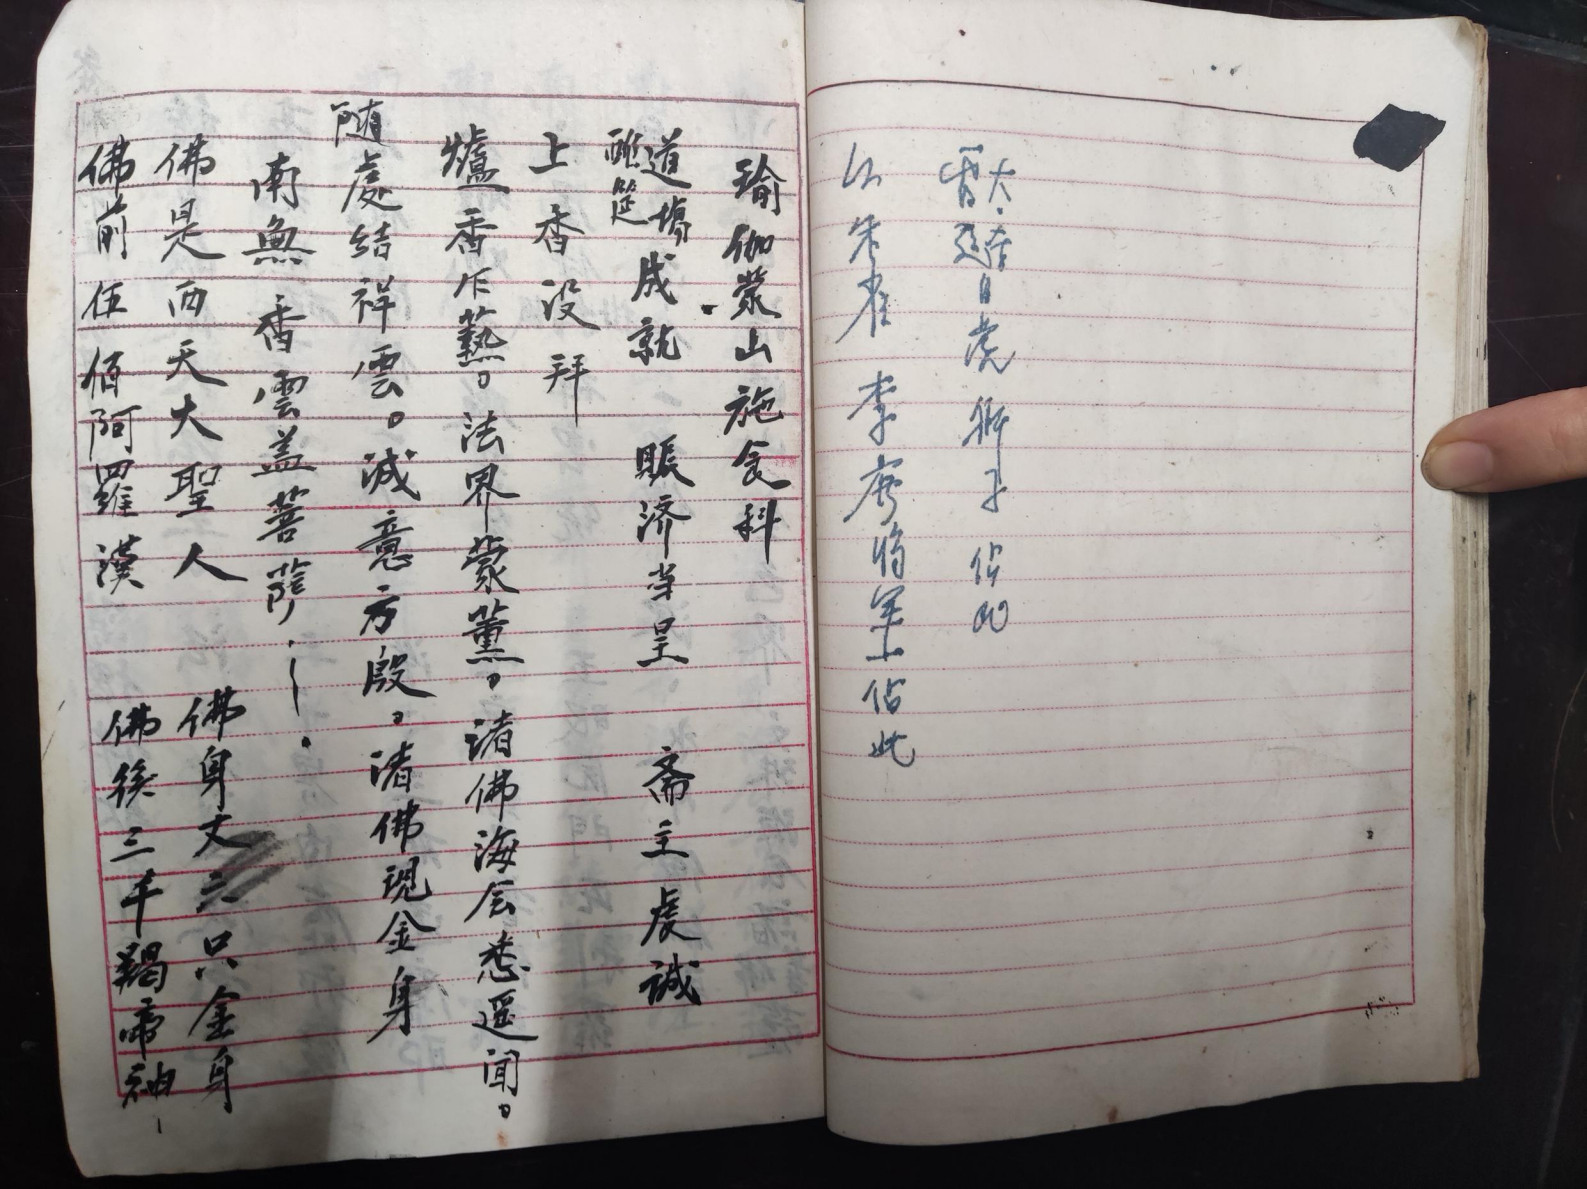 白虎 獅子 佔
朱雀 李广将军佔此
瑜伽蒙山施食科
道塲成就 賑济当呈 斋主虔诚
醮筵
上香设拜
爐香乍爇。法界蒙薰。诸佛海会悉遥闻。
随處结祥雲。诚意方殷。诸佛現金身
南無香雲盖菩萨
佛是西天大聖人 佛身丈六只金身
佛前伍佰阿羅漢 佛後三千羯帝神